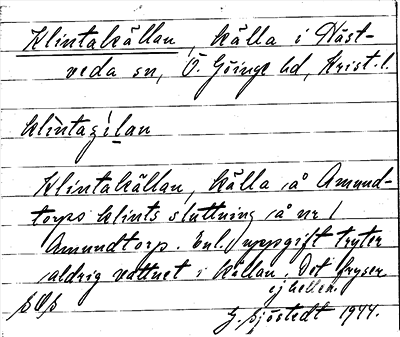 Klintakällan, källa i Näst-
veda sn, Ö. Göinge hd, Krist. l.
klintagilan
Klintakällan, källa å Amund-
torps klints sluttning å nr 1
Amundtorp. Enl. uppgift tryter
aldrig vattnet i källan. Det fryser
ej heller.
G. Sjöstedt 1944.